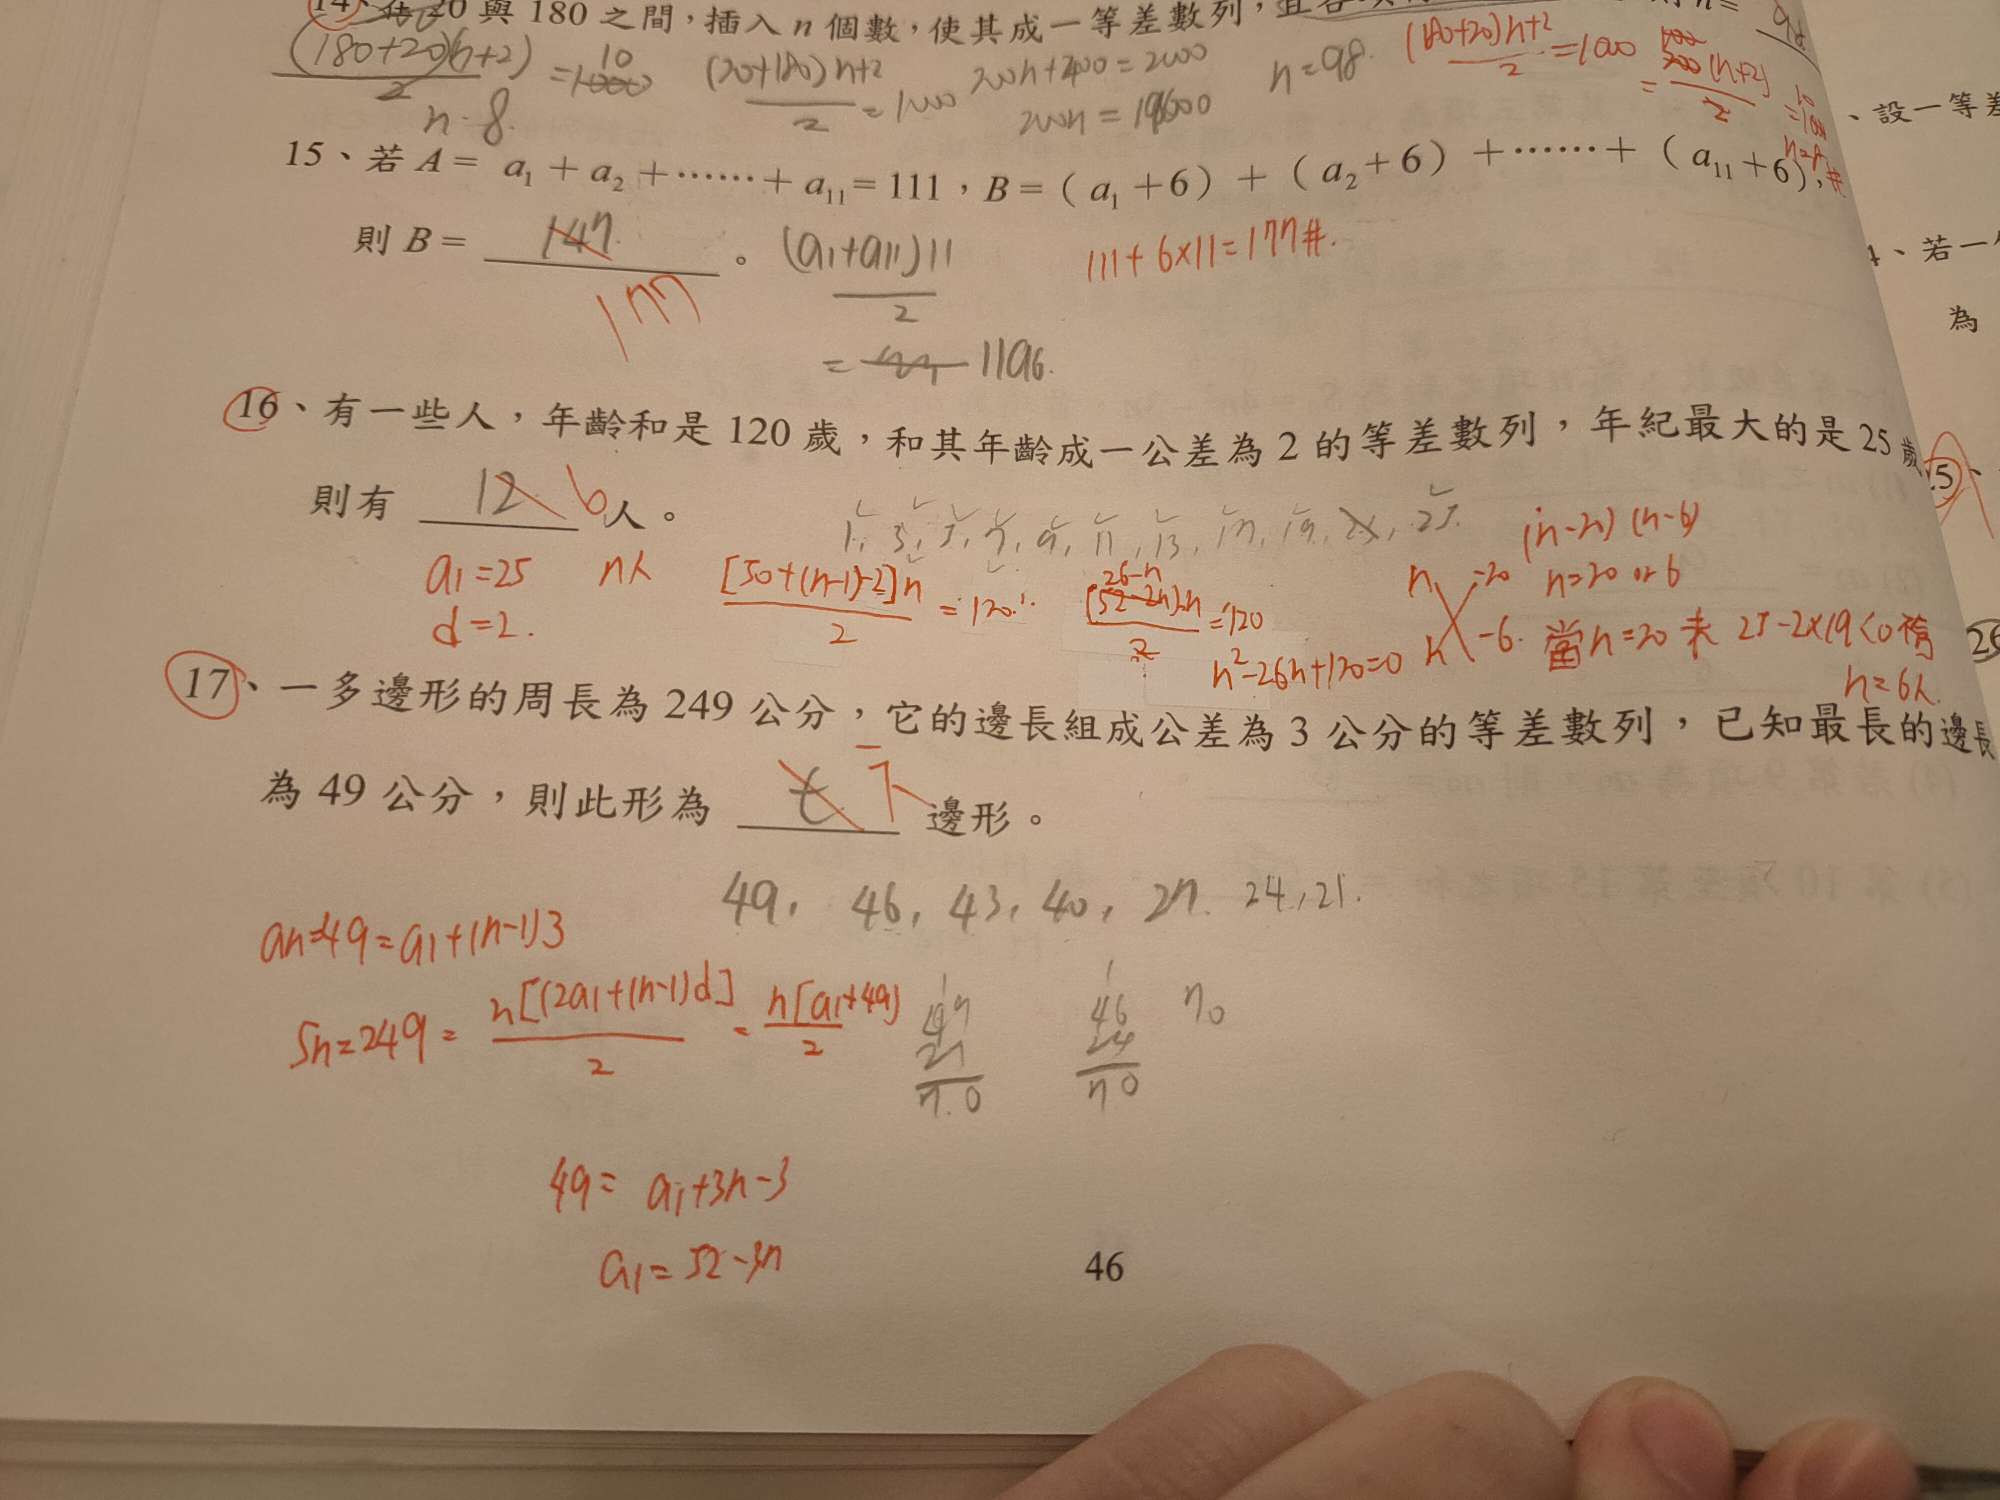 14、在 20 與 180 之間，插入 n 個數，使其成一等差數列，且
(180+20)(n+2)
2
=
10
n=8.
(20+180)n+2
2
=1000
200n+400=2000
200n=19600
n=98.
(180+20)n+2
2
=1000
(n+2)
2
n=8,#
15、若 A= a₁+a₂+……+a₁₁=111，B=(a₁+6)+(a₂+6)+……+(a₁₁+6),
則 B= 147 。
177
(a₁+a11)11
2
= 11a6.
111+6×11=177#.
16、有一些人，年齡和是 120 歲，和其年齡成一公差為 2 的等差數列，年紀最大的是 25 歲
則有 12. 6 人。
1, 3, 5, 7, 9, 11, 13, 17, 19, 2x, 25.
a₁=25 n人
d=2.
[50+(n-1)-2]n
2
=120
26-n
(52-2n)·n
2
=120
n²-26n+120=0
n -20
n -6.
(n-20)(n-6)
n=20 or 6
當n=20 未 25-2×19<0
n=6人.
17、一多邊形的周長為 249 公分，它的邊長組成公差為 3 公分的等差數列，已知最長的邊長
為 49 公分，則此形為 七. 邊形。
49, 46, 43, 40, 27. 24, 21.
an=49=a₁+(n-1)3
Sn=249=
n[(2a₁+(n-1)d]
2
=
n[a₁+49)
2
49
21
70
46
24
70
70
49= a₁+3n-3
a₁=52-3n
46
、設一等差
4、若一
為
25、
26